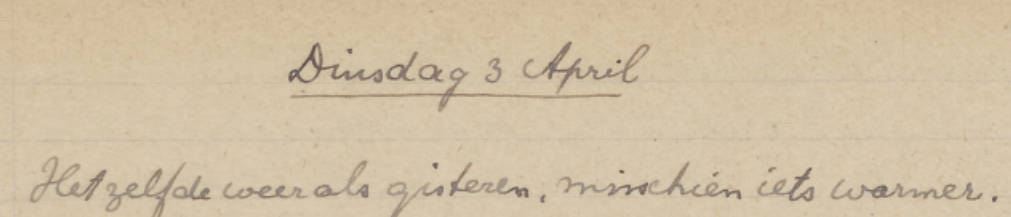 Dinsdag 3 April
Hetzelfde weer als gisteren, misschien iets warmer.